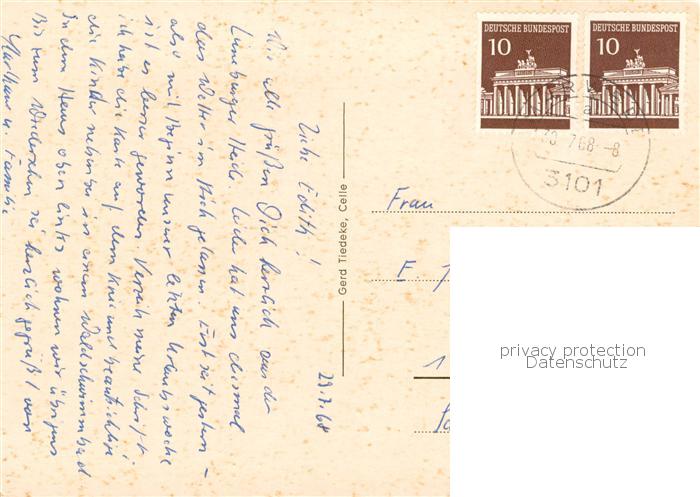 29.7.68
Liebe Edith!
Wir alle grüßen Dich herzlich aus der
Lüneburger Heide. Leider hat uns diesmal
das Wetter im Stich gelassen. Erst seit gestern –
also mit Beginn unserer letzten Urlaubswoche
ist es besser geworden. Verzeih meine Schrift.
ich habe die Karte auf dem Knie und beaufsichtige
die Kinder nebenbei in einem Waldschwimmbad
In dem Haus oben links wohnen wir übrigens
Bis zum Wiedersehen sei herzlich gegrüßt von
u. Familie
Gerd Tiedeke, Celle
DEUTSCHE BUNDESPOST
10
DEUTSCHE BUNDESPOST
10
7.68 – 8
3101
Frau
E.
1
privacy protection
Datenschutz